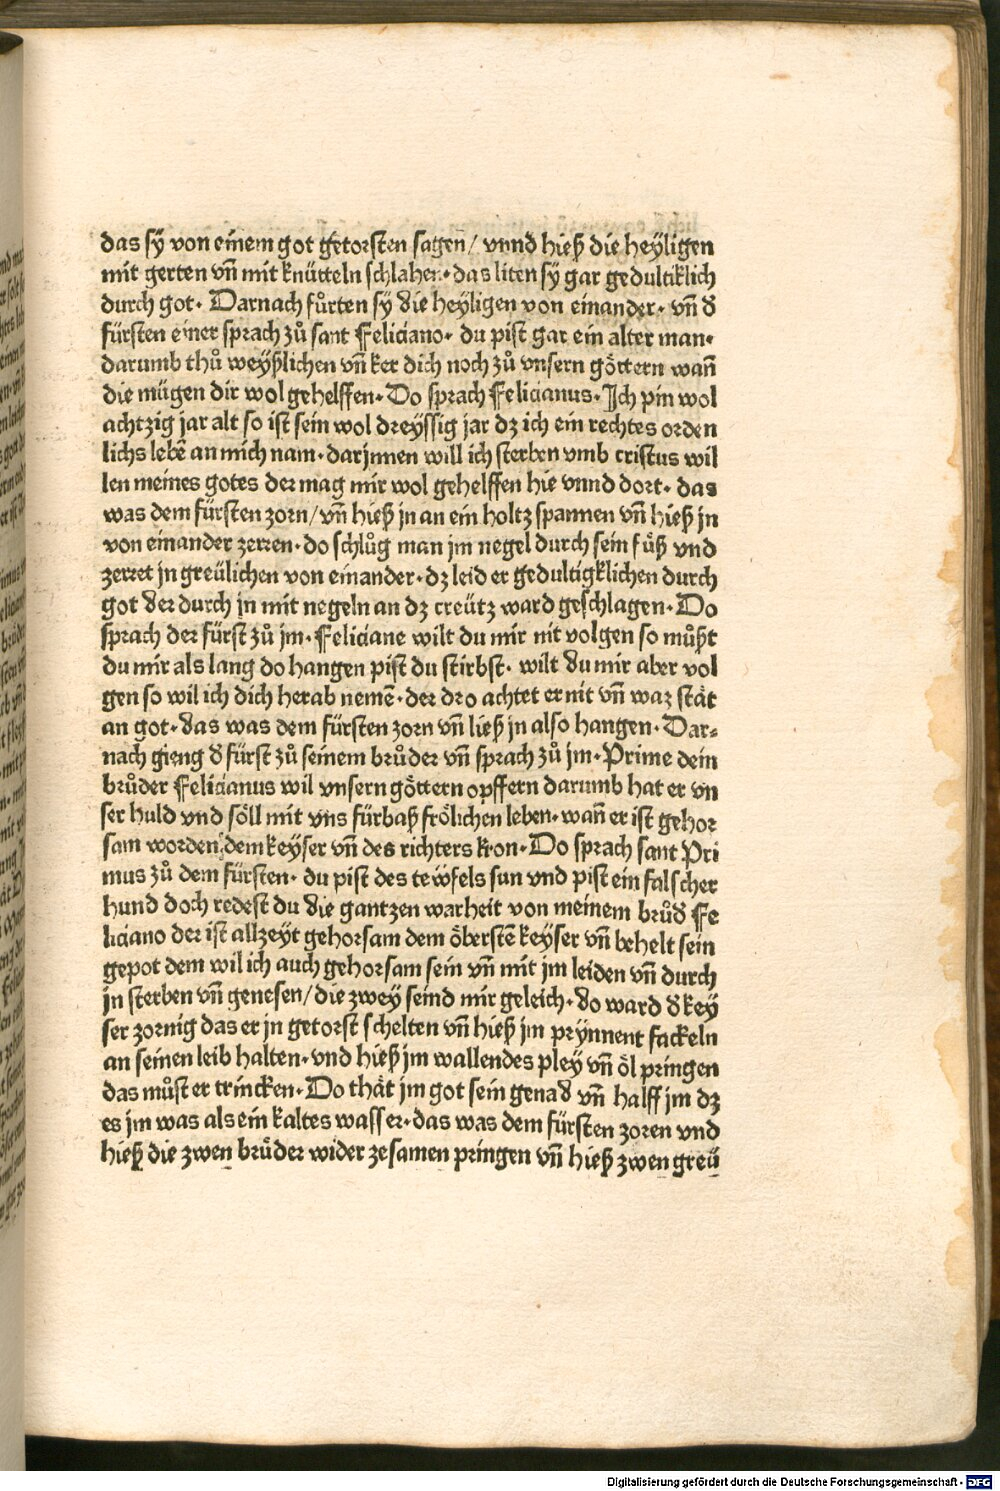 das sÿ von einem got getorsten sagen/ vnnd hieß die heÿligen
mit gerten vñ mit knütteln schlahen· das liten sÿ gar gedultiklich
durch got· Darnach fůrten sÿ die heÿligen von einander· vñ d
fürsten einer sprach zů sant Feliciano· du pist gar ein alter man·
darumb thů weyßlichen vñ ker dich noch zů vnsern göttern wañ
die mügen dir wol gehelffen· Do sprach Felicianus· Jch pin wol
achtzig jar alt so ist sein wol dreÿssig jar dz ich ein rechtes orden
lichs lebē an mich nam· darjnnen will ich sterben vmb cristus wil
len meines gotes der mag mir wol gehelffen hie vnnd dort· das
was dem fürsten zorn/ vñ hieß jn an ein holtz spannen vñ hieß jn
von einander zerren· do schlůg man jm negel durch sein fůß vnd
zerret jn greülichen von einander· dz leid er gedultigklichen durch
got der durch jn mit negeln an dz creütz ward geschlagen· Do
sprach der fürst zů jm· Feliciane wilt du mir nit volgen so můßt
du mir als lang do hangen pist du stirbst· wilt du mir aber vol
gen so wil ich dich herab nemē· der dro achtet er nit vñ waz stät
an got· das was dem fürsten zorn vñ ließ jn also hangen· Dar⸗
nach gieng d fürst zů seinem brůder vñ sprach zů jm· Prime dein
brůder Felicianus wil vnsern göttern opffern darumb hat er vn
ser huld vnd söll mit vns fürbaß frölichen leben· wañ er ist gehor
sam worden dem keÿser vñ des richters kron· Do sprach sant Pri
mus zů dem fürsten· du pist des tewfels sun vnd pist ein falscher
hund doch redest du die gantzen warheit von meinem brůd Fe
liciano der ist allzeyt gehorsam dem öberstē keÿser vñ behelt sein
gepot dem wil ich auch gehorsam sein vñ mit jm leiden vñ durch
jn sterben vñ genesen/ die zweÿ seind mir geleich· do ward d keÿ
ser zornig das er jn getorst schelten vñ hieß jm prÿnnent fackeln
an seinen leib halten· vnd hieß jm wallendes pleÿ vñ öl pringen
das můst er trincken· Do thät jm got sein genad vñ halff jm dz
es jm was als ein kaltes wasser· das was dem fürsten zoren vnd
hieß die zwen brůder wider zesamen pringen vñ hieß zwen greü
Digitalisierung gefördert durch die Deutsche Forschungsgemeinschaft - DFG